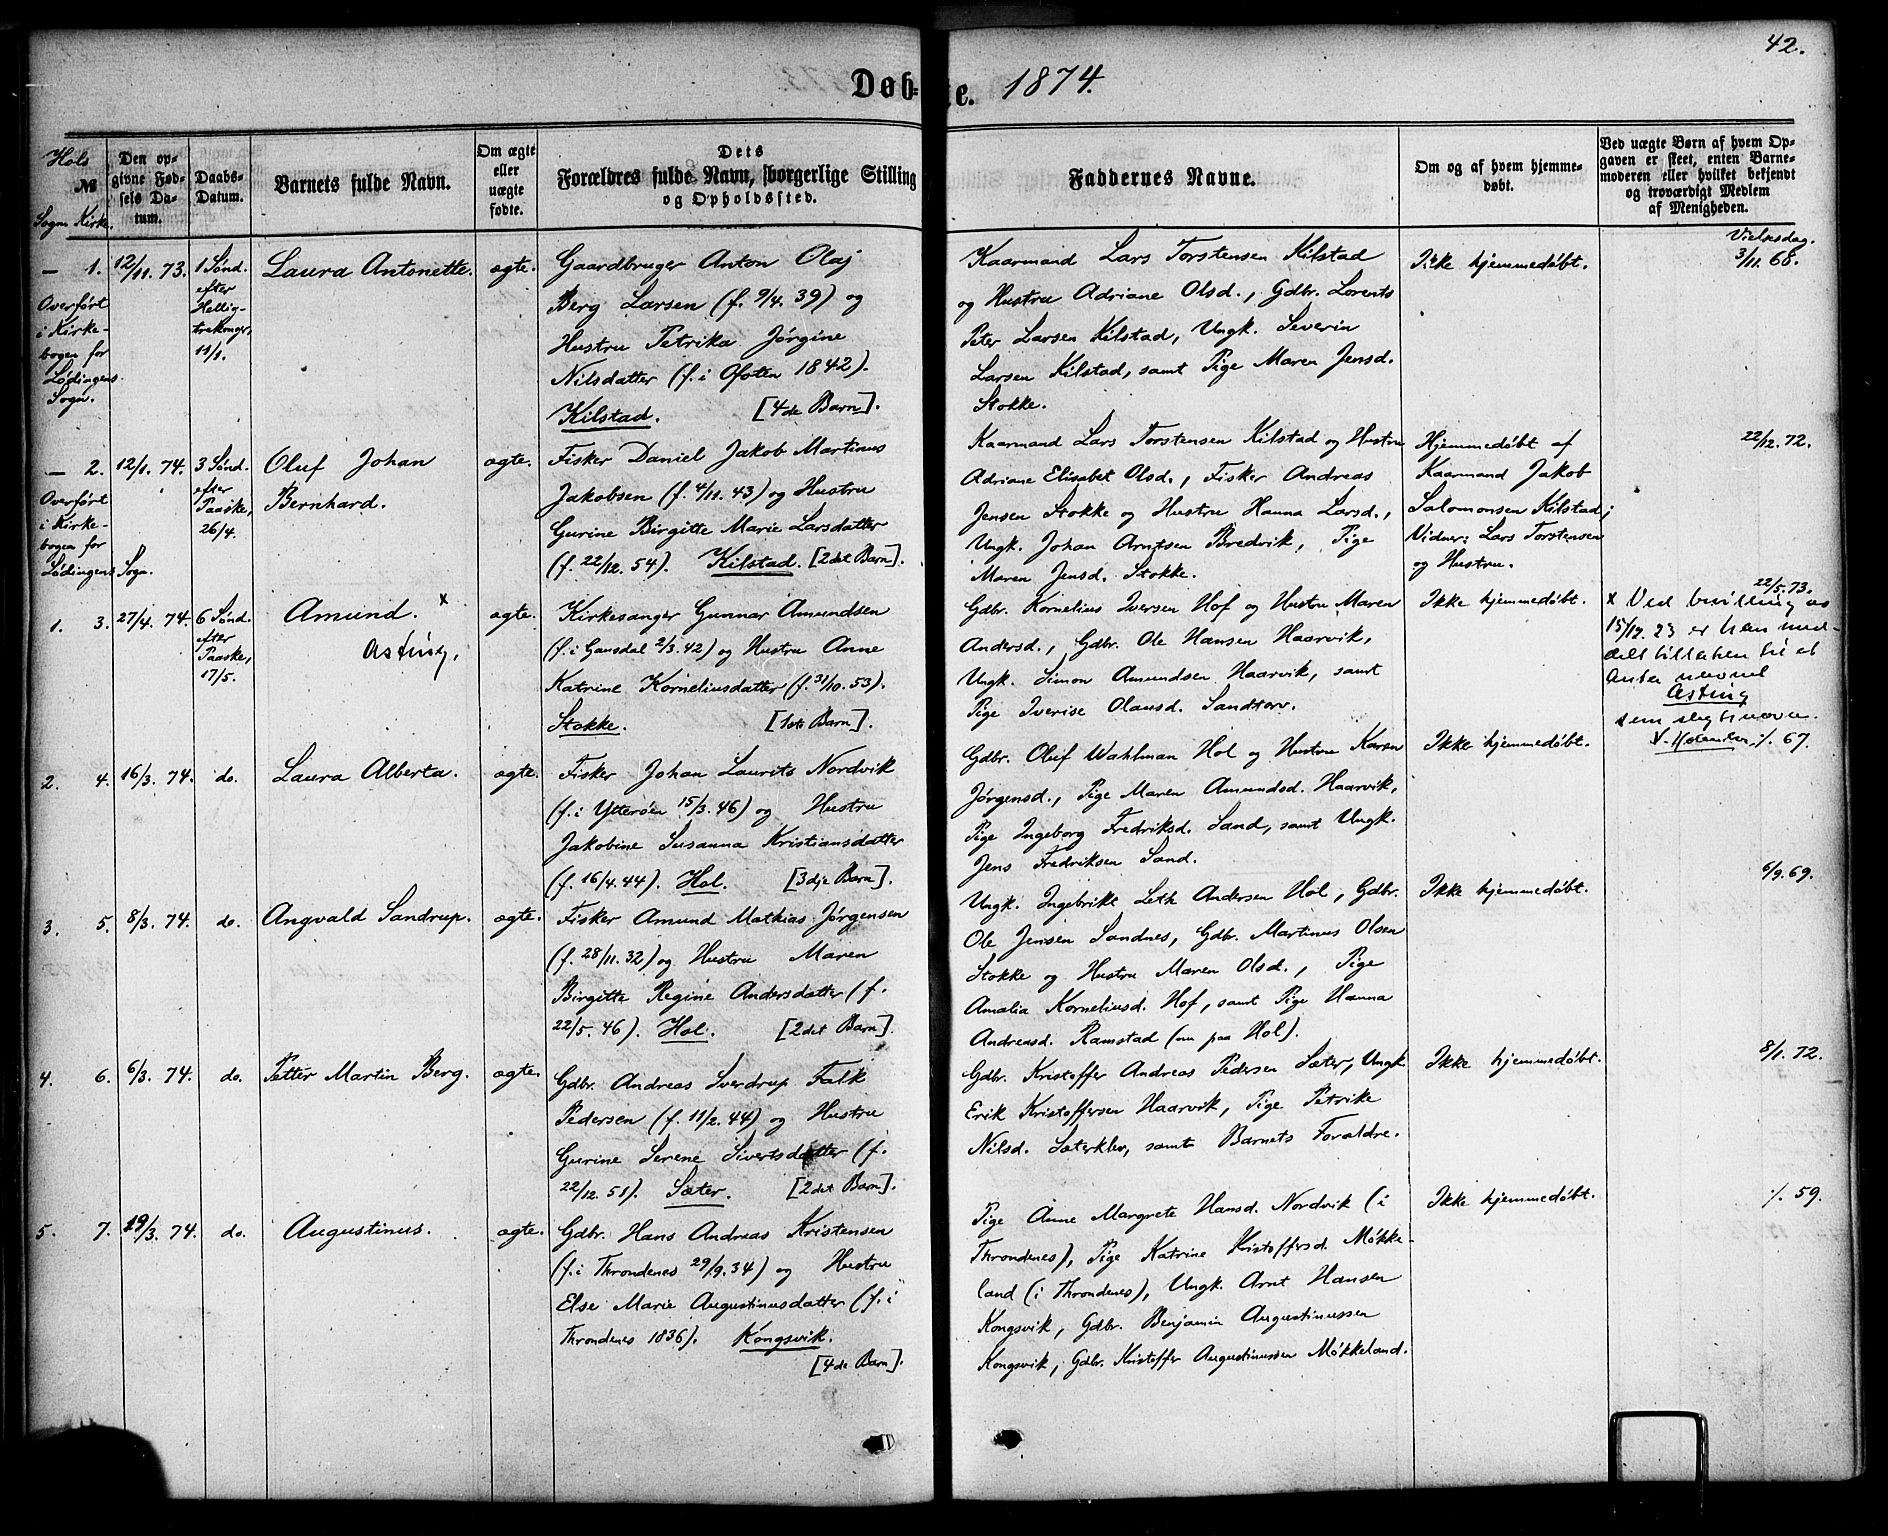 42.
Døb-te. 1874.
Hols
№
Sogn. Kirke.
Den op-
givne Fød-
sels Da-
tum.
Daabs-
Datum.
Barnets fulde Navn.
Om ægte
eller
uægte
fødte.
Dets
Forældres fulde Navn, borgerlige Stilling
og Opholdssted.
Faddernes Navne.
Om og af hvem hjemme-
døbt.
Ved uægte Børn af hvem Op-
gaven er skeet, enten Barne-
moderen eller hvilket bekjendt
og troværdigt Medlem
af Menigheden.
— 1.
Overført
i Kirke-
bogen for
Lødingens
Sogn.
12/11. 73.
1 Sønd.
efter
Hellig-
trekonger,
11/1.
Laura Antonette.
ægte.
Gaardbruger Anton Olaj
Berg Larsen (f. 9/4. 39) og
Hustru Petrika Jørgine
Nilsdatter (f. i Ofoten 1842).
Kilstad. [4de Barn].
Kaarmand Lars Torstensen Kilstad
og Hustru Adriane Olsd., Gdbr. Lorents
Peter Larsen Kilstad, Ungk. Severin
Larsen Kilstad, samt Pige Maren Jensd.
Stokke.
Ikke hjemmedøbt.
Vielsesdag.
3/11. 68.
— 2.
Overført
i Kirke-
bogen for
Lødingens Sogn.
12/1. 74.
3 Sønd.
efter
Paaske,
26/4.
Oluf Johan
Bernhard.
ægte.
Fisker Daniel Jakob Martinus
Jakobsen (f. 4/11. 43) og Hustru
Gurine Birgitte Marie Larsdatter
(f. 22/12. 54). Kilstad. [2det Barn].
Kaarmand Lars Torstensen Kilstad og Hustru
Adriane Elisabet Olsd., Fisker Andreas
Jensen Stokke og Hustru Hanna Larsd.,
Ungk. Johan Arntsen Bredvik, Pige
Maren Jensd. Stokke.
Hjemmedøbt af
Kaarmand Jakob
Salomonsen Kilstad;
Vidner: Lars Torstensen
og Hustru.
22/12. 72.
1. 3.
27/4. 74.
6 Sønd.
efter
Paaske,
17/5.
Amund. x
Asting.
ægte.
Kirkesanger Gunnar Amundsen
(f. i Gausdal 2/3. 42) og Hustru Anne
Katrine Korneliusdatter (f. 31/10. 53).
Stokke. [1ste Barn].
Gdbr. Kornelius Iversen Hof og Hustru Maren
Andersd., Gdbr. Ole Hansen Haarvik,
Ungk. Simon Amundsen Haarvik, samt
Pige Iverise Olausd. Sandtorv.
Ikke hjemmedøbt.
22/5. 73.
x Ved bevilling av
15/12. 23 er han med-
delt tillatelse til at
anta navnet
Asting
som slegtsnavn.
2. 4.
16/3. 74.
do.
Laura Alberta.
ægte.
Fisker Johan Laurits Nordvik
(f. i Ytterøen 15/3. 46) og Hustru
Jakobine Susanna Kristiansdatter
(f. 16/4. 44). Hol. [3dje Barn].
Gdbr. Oluf Wahlman Hol og Hustru Karen
Jørgensd., Pige Maren Amundsd. Haarvik,
Pige Ingeborg Fredriksd. Sand, samt Ungk.
Jens Fredriksen Sand.
Ikke hjemmedøbt.
./. 67.
3. 5.
8/3. 74.
do.
Angvald Sandrup.
ægte.
Fisker Amund Mathias Jørgensen
(f. 28/11. 32) og Hustru Maren
Birgitte Regine Andersdatter (f.
22/5. 46). Hol. [2det Barn].
Ungk. Ingebrikt Leth Andersen Hol, Gdbr.
Ole Jensen Sandnes, Gdbr. Martinus Olsen
Stokke og Hustru Maren Olsd., Pige
Amalia Korneliusd. Hof, samt Pige Hanna
Andreasd. Ramstad (nu paa Hol).
Ikke hjemmedøbt.
6/9. 69.
4. 6.
6/3. 74.
do.
Petter Martin Berg.
ægte.
Gdbr. Andreas Sverdrup Falk
Pedersen (f. 11/2. 44) og Hustru
Gurine Serene Sivertsdatter (f.
22/12. 51). Sæter. [2det Barn].
Gdbr. Kristoffer Andreas Pedersen Sæter, Ungk.
Erik Kristoffersen Haarvik, Pige Petrike
Nilsd. Sæterklev, samt Barnets Forældre.
Ikke hjemmedøbt.
8/1. 72.
5. 7.
19/3. 74.
do.
Augustinus.
ægte.
Gdbr. Hans Andreas Kristensen
(f. i Throndenes 29/9. 34) og Hustru
Else Marie Augustinusdatter (f. i
Throndenes 1836). Kongsvik.
[4de Barn].
Pige Anne Margrete Hansd. Nordvik (i
Throndenes), Pige Katrine Kristoffersd. Møkke-
land (i Throndenes), Ungk. Arnt Hansen
Kongsvik, Gdbr. Benjamin Augustinussen
Kongsvik, Gdbr. Kristoffer Augustinussen Møkkeland.
Ikke hjemmedøbt.
./. 59.